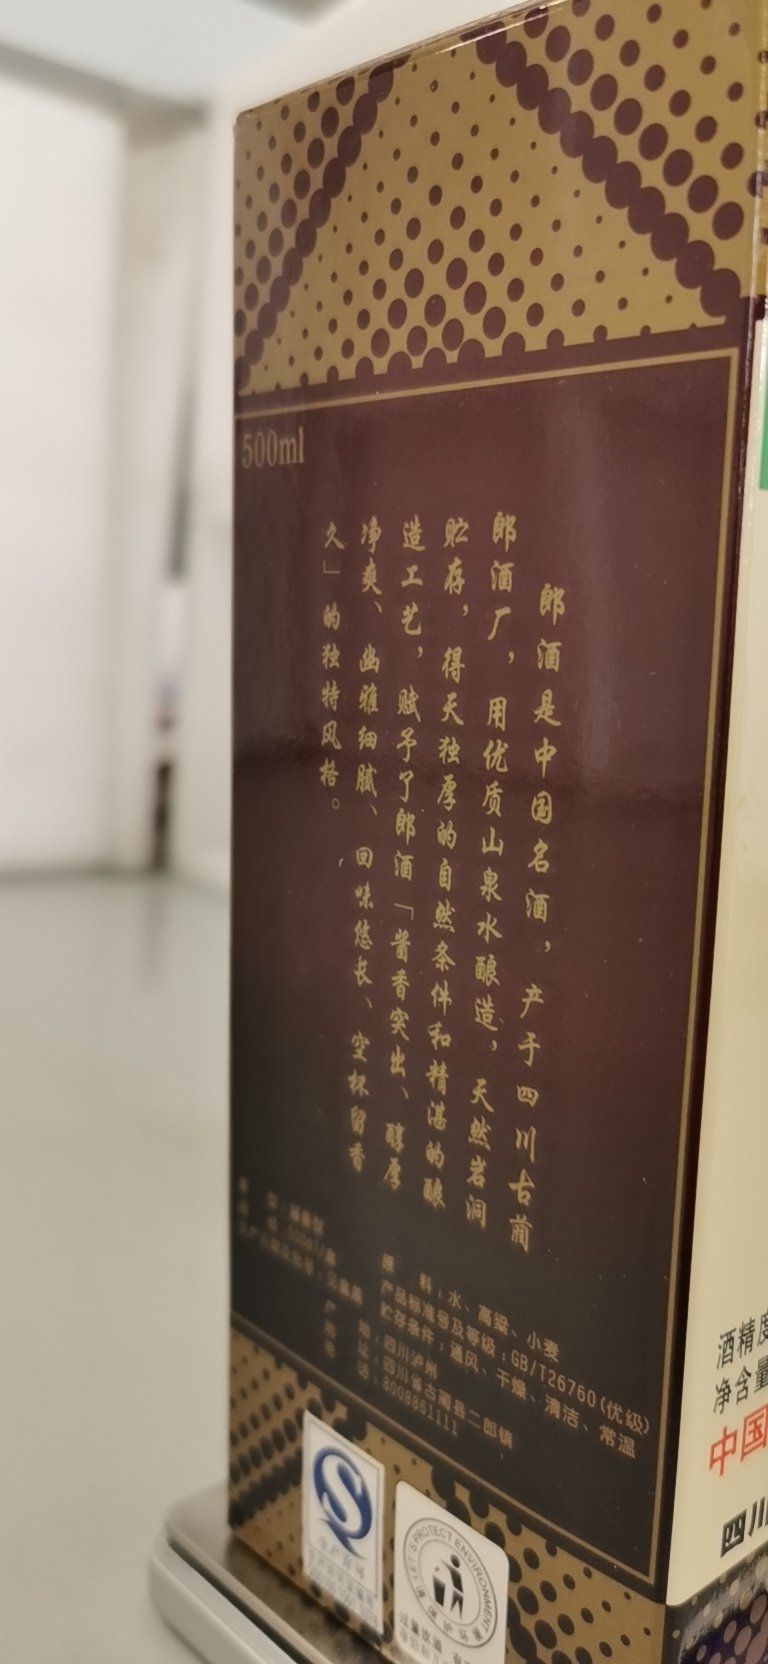 500ml
郎酒是中国名酒，产于四川古蔺
郎酒厂，用优质山泉水酿造，天然岩洞
贮存，得天独厚的自然条件和精湛的酿
造工艺，赋予了郎酒「酱香突出、醇厚
净爽、幽雅细腻、回味悠长、空杯留香
久」的独特风格。
原 料：水、高粱、小麦
产品标准号及等级：GB/T26760(优级)
贮存条件：通风、干燥、清洁、常温
产 地：四川泸州
地 址：四川省古蔺县二郎镇
电 话：8008861111
生产许可
LET'S PROTECT ENVIRONMENT
酒精度
净含量
中国
四川